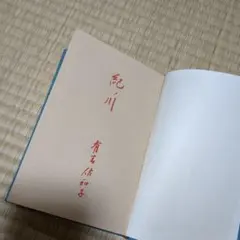 紀ノ川
有吉佐和子